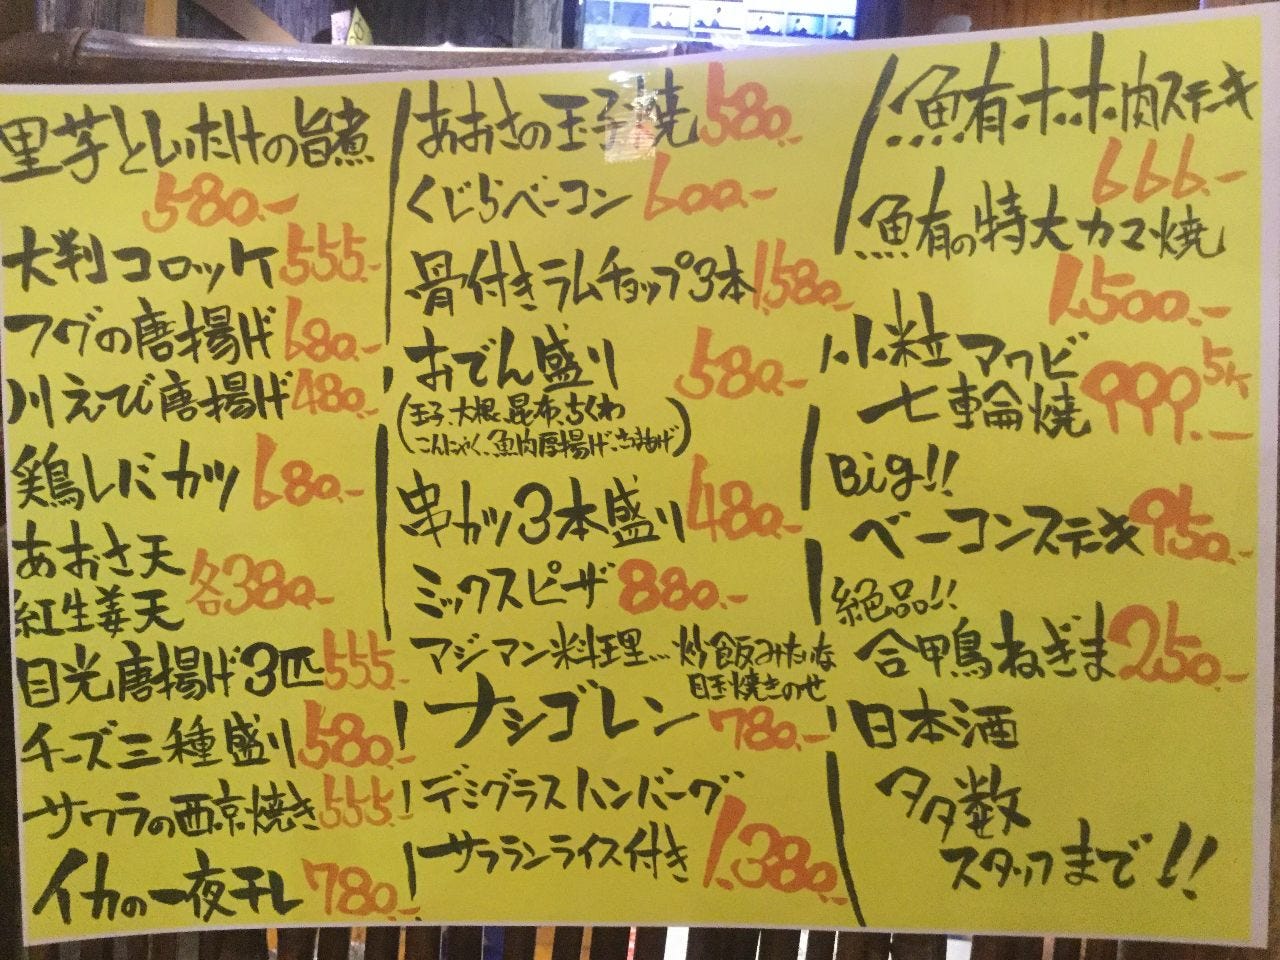 里芋としいたけの旨煮
580.-
大判コロッケ 555.-
フグの唐揚げ 680.-
川えび唐揚げ 480.-
鶏レバカツ 680.-
あおさ天
紅生姜天 各380.-
目光唐揚げ3匹 555.-
チーズ三種盛り 580.-
サワラの西京焼き 555.-
イカの一夜干し 780.-
あおさの玉子焼 580.-
くじらベーコン 600.-
骨付きラムチョップ3本 1,580.-
おでん盛り 580.-
(玉子、大根、昆布、ちくわ
こんにゃく、魚肉唐揚げ、さつまあげ)
串カツ3本盛り 480.-
ミックスピザ 880.-
マジマン料理…炒飯みたいな
目玉焼きのせ
ナシゴレン 780.-
デミグラスハンバーグ
サフランライス付き 1,380.-
鮪ホホ肉ステーキ
666.-
鮪の特大カマ焼
1,500.-
小粒アワビ 5ヶ
七輪焼 999.-
Big!!
ベーコンステーキ 950.-
絶品!!
合鴨ねぎま 250.-
日本酒
多数
スタッフまで!!